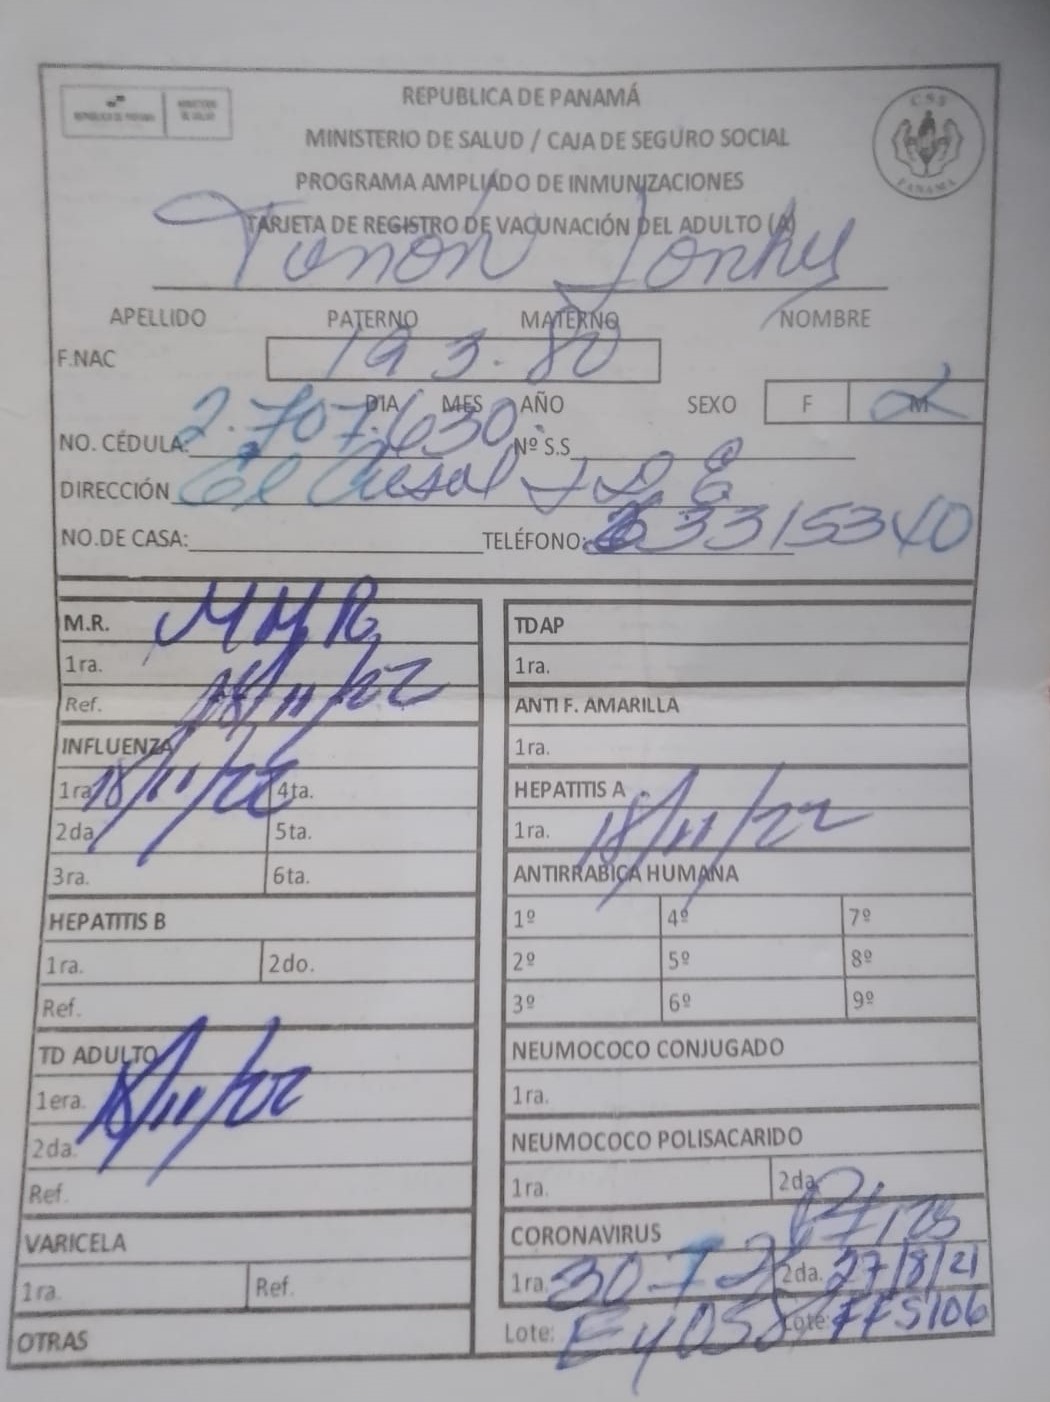 REPUBLICA DE PANAMÁ
MINISTERIO DE SALUD / CAJA DE SEGURO SOCIAL
PROGRAMA AMPLIADO DE INMUNIZACIONES
CSS
PANAMÁ
TARJETA DE REGISTRO DE VACUNACIÓN DEL ADULTO (A)
Tuñón
APELLIDO PATERNO MATERNO NOMBRE
F.NAC 19 3. 80
DIA MES AÑO SEXO F M
NO. CÉDULA: 2.707.630 Nº S.S
DIRECCIÓN El
NO.DE CASA: TELÉFONO: 63315340
M.R. MMR
1ra.
Ref. 18/11/22
INFLUENZA
1ra. 18/11/22 4ta.
2da 5ta.
3ra. 6ta.
HEPATITIS B
1ra. 2do.
Ref.
TD ADULTO
1era. 18/11/22
2da.
Ref.
VARICELA
1ra. Ref.
OTRAS
TDAP
1ra.
ANTI F. AMARILLA
1ra.
HEPATITIS A
1ra. 18/11/22
ANTIRRABICA HUMANA
1º 4º 7º
2º 5º 8º
3º 6º 9º
NEUMOCOCO CONJUGADO
1ra.
NEUMOCOCO POLISACARIDO
1ra. 2da
CORONAVIRUS
1ra. 30-7-21 2da. 27/8/21
Lote: Lote: FF5106